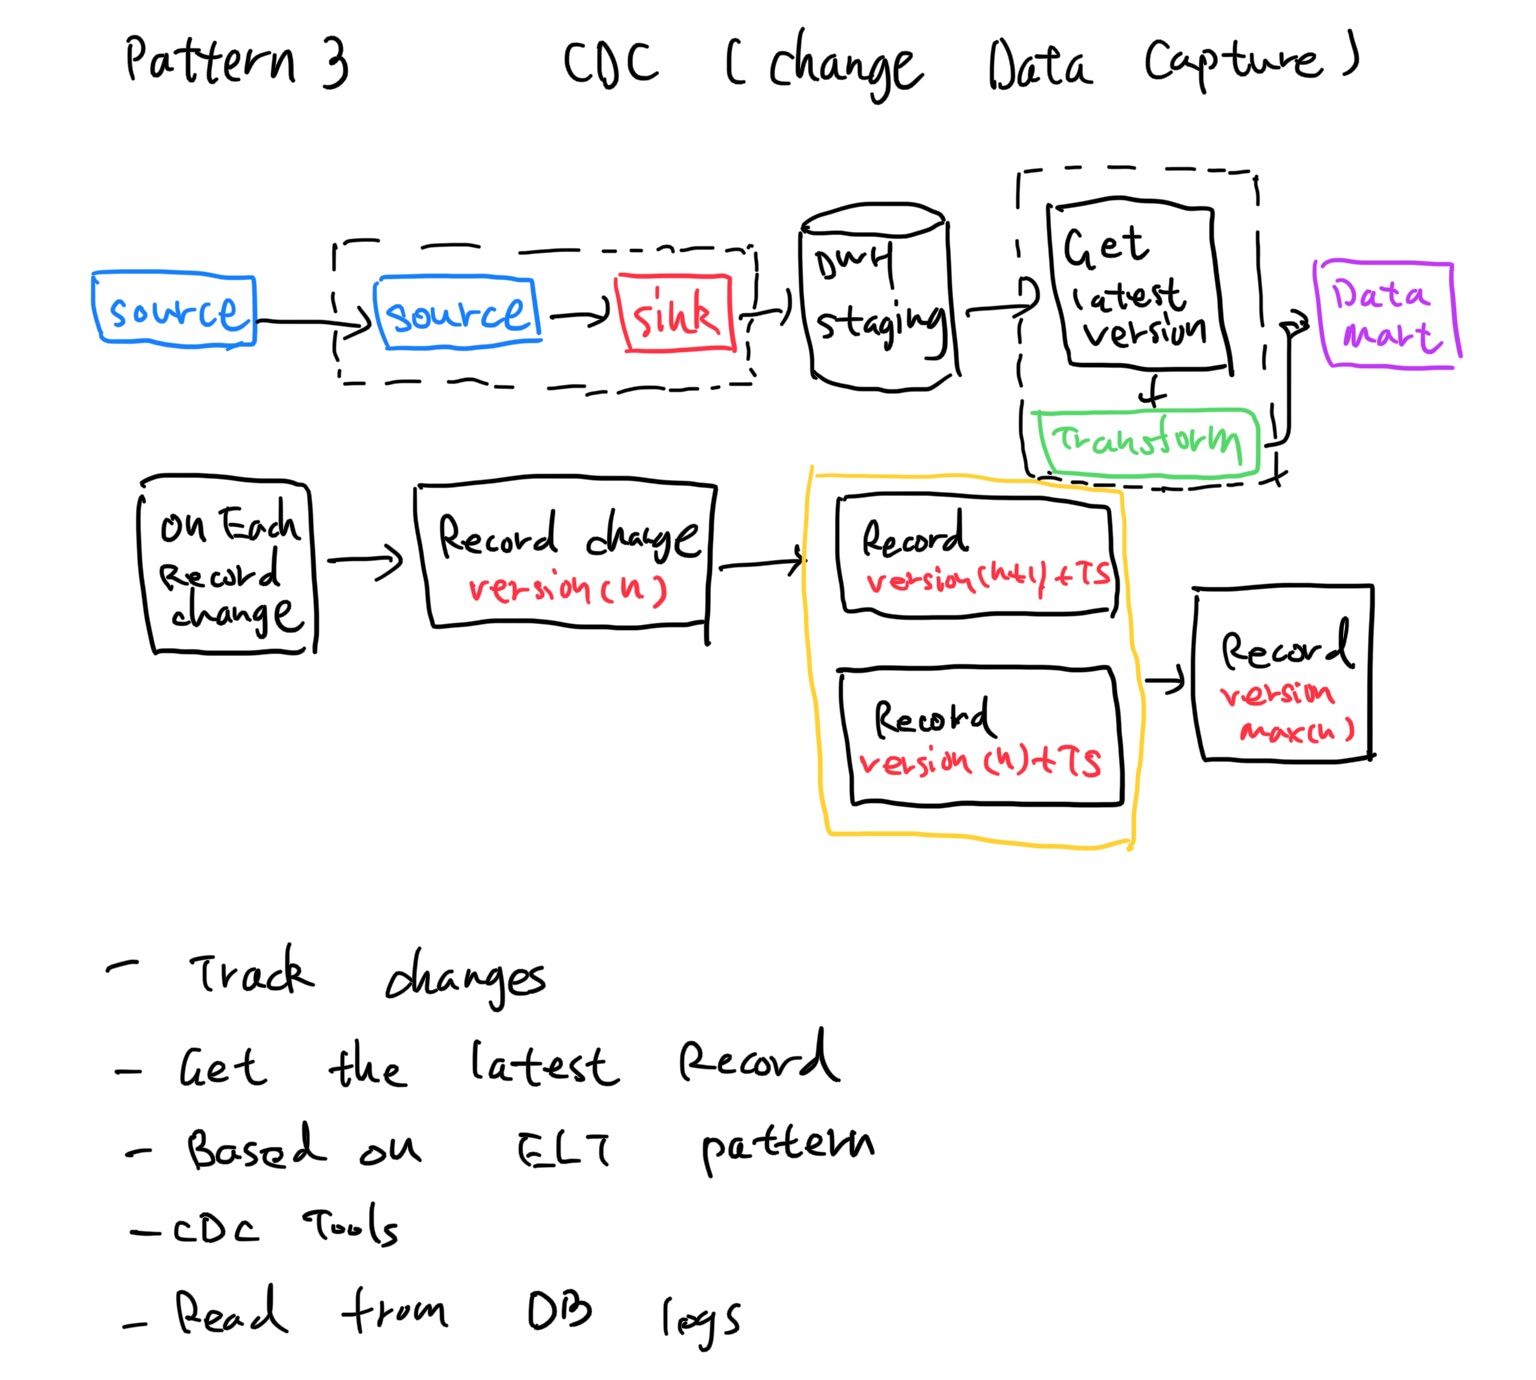 Pattern 3 CDC (change Data Capture)
source
source
sink
DWH
staging
Get
latest
version
+
Transform
Data
Mart
On Each
Record
change
Record change
version(n)
Record
version(n+1)+TS
Record
version(n)+TS
Record
version
max(n)
- Track changes
- Get the latest Record
- Based on ELT pattern
- CDC Tools
- Read from DB logs